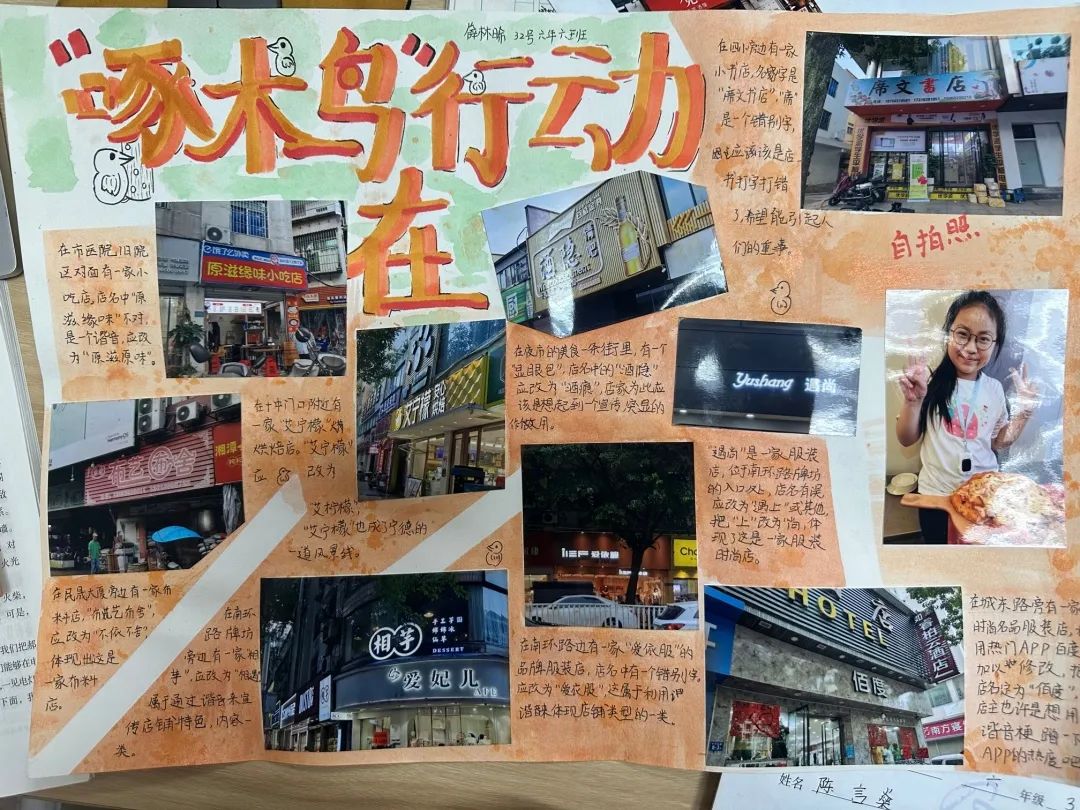 "啄木鸟"行动
在
林 32号六年六班
在四小旁边有一家
小书店,名字是
"席文书店","席"
是一个错别字,
应该该是店
书打字打错
了,希望能引起人
们的重事。
席文書店
自拍照
在市医院旧院
区对面有一家小
吃店,店名中"原
滋缘味"不对,
是一个谐音,应改
为"原滋原味"。
原滋缘味小吃店
在夜市的美食一条街里,有一个
"显眼包",店名中的"酒
应改为"酒瘾",店家为此应
该是想起到一个宣传,突显的
作效用。
Yushang 遇尚
在十中门口附近有
一家"艾宁檬"烘
焙店。"艾宁檬"
应 改为
"艾柠檬",
"艾宁檬"也成了宁德的
一道风景线。
艾宁檬
湘潭
"遇尚"是一家服装
店,位于南环路牌坊
的入口处,店名有误
应改为"遇上"或其他,
把"上"改为"尚",体
现了这是一家服装
时尚店。
在民晟大厦旁边有一家布
料店,"布艺布舍",
应改为"不依不舍",
体现出这是
一家布料
店。
在南环
路牌坊
旁边有一家相
芋",应改为"相遇"
属于通过谐音来宣
传店铺特色,内容一
类。
相芋
手工芋圆
绵绵冰
仙草
DESSERT
爱妃儿
CAFE
爱依服
在南环路边有一家"爱依服"的
品牌服装店,店名中有一个错别字,
应改为"爱衣服",这属于利用谐
谐音来体现店铺类型的一类。
HOTEL
佰度
柏云酒店
南方寝
在城东路旁有一家
时尚名品服装店,
用热门APP百度
加以修改,
店名字为"佰度",
店主也许是想用
谐音梗,蹭一下
APP的热度吧
姓名 陈言燊 六 年级